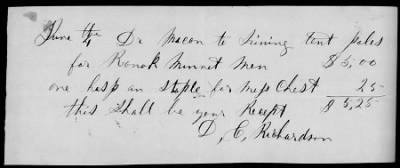 June the 4 Dr Macon to Lining tent poles
for Ronok Minnit Men $ 5,00
one hasp an Staple for Mess Chest 25
this Shall be your Recept $ 5,25
D, C, Richardson